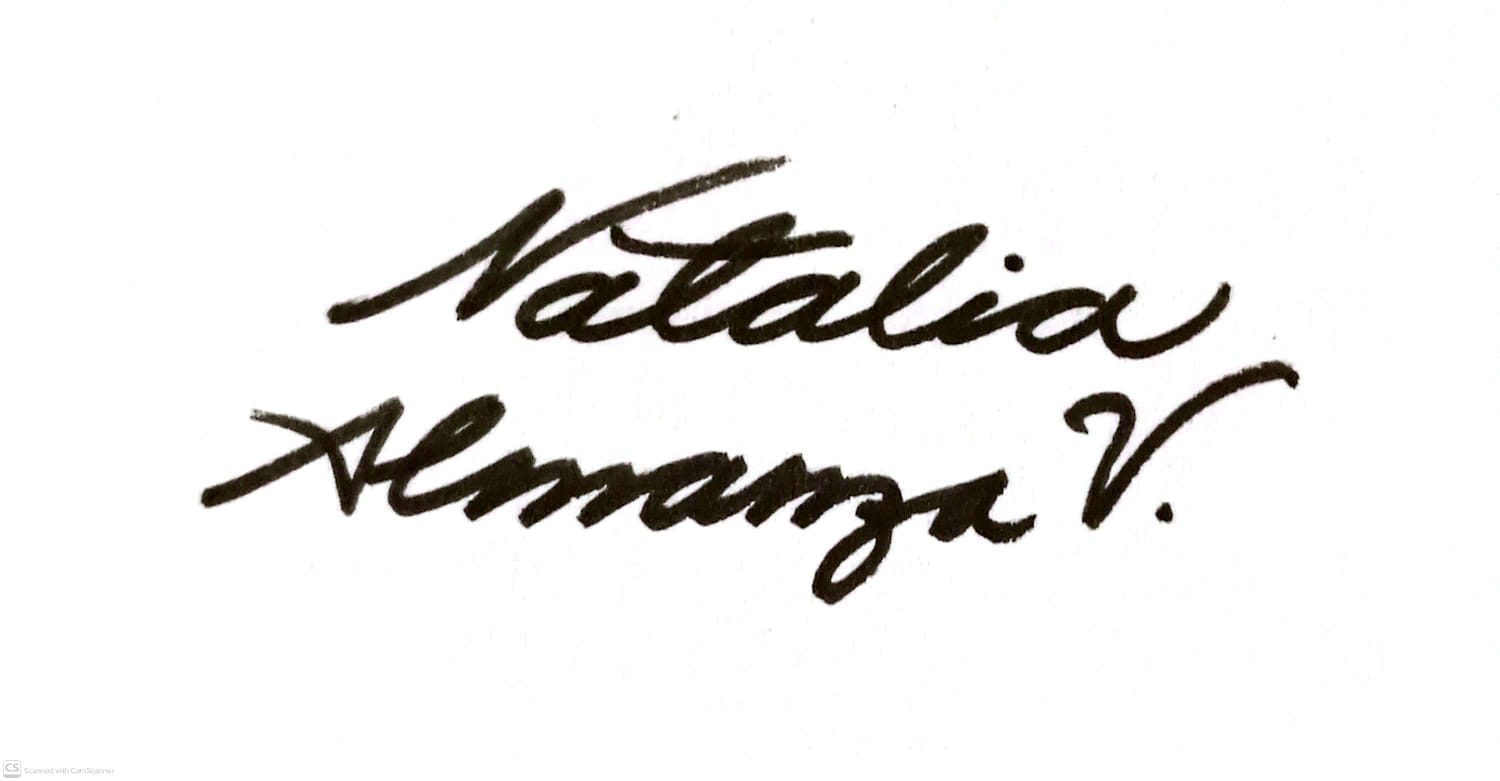 Natalia
Almanza V.
CS Scanned with CamScanner